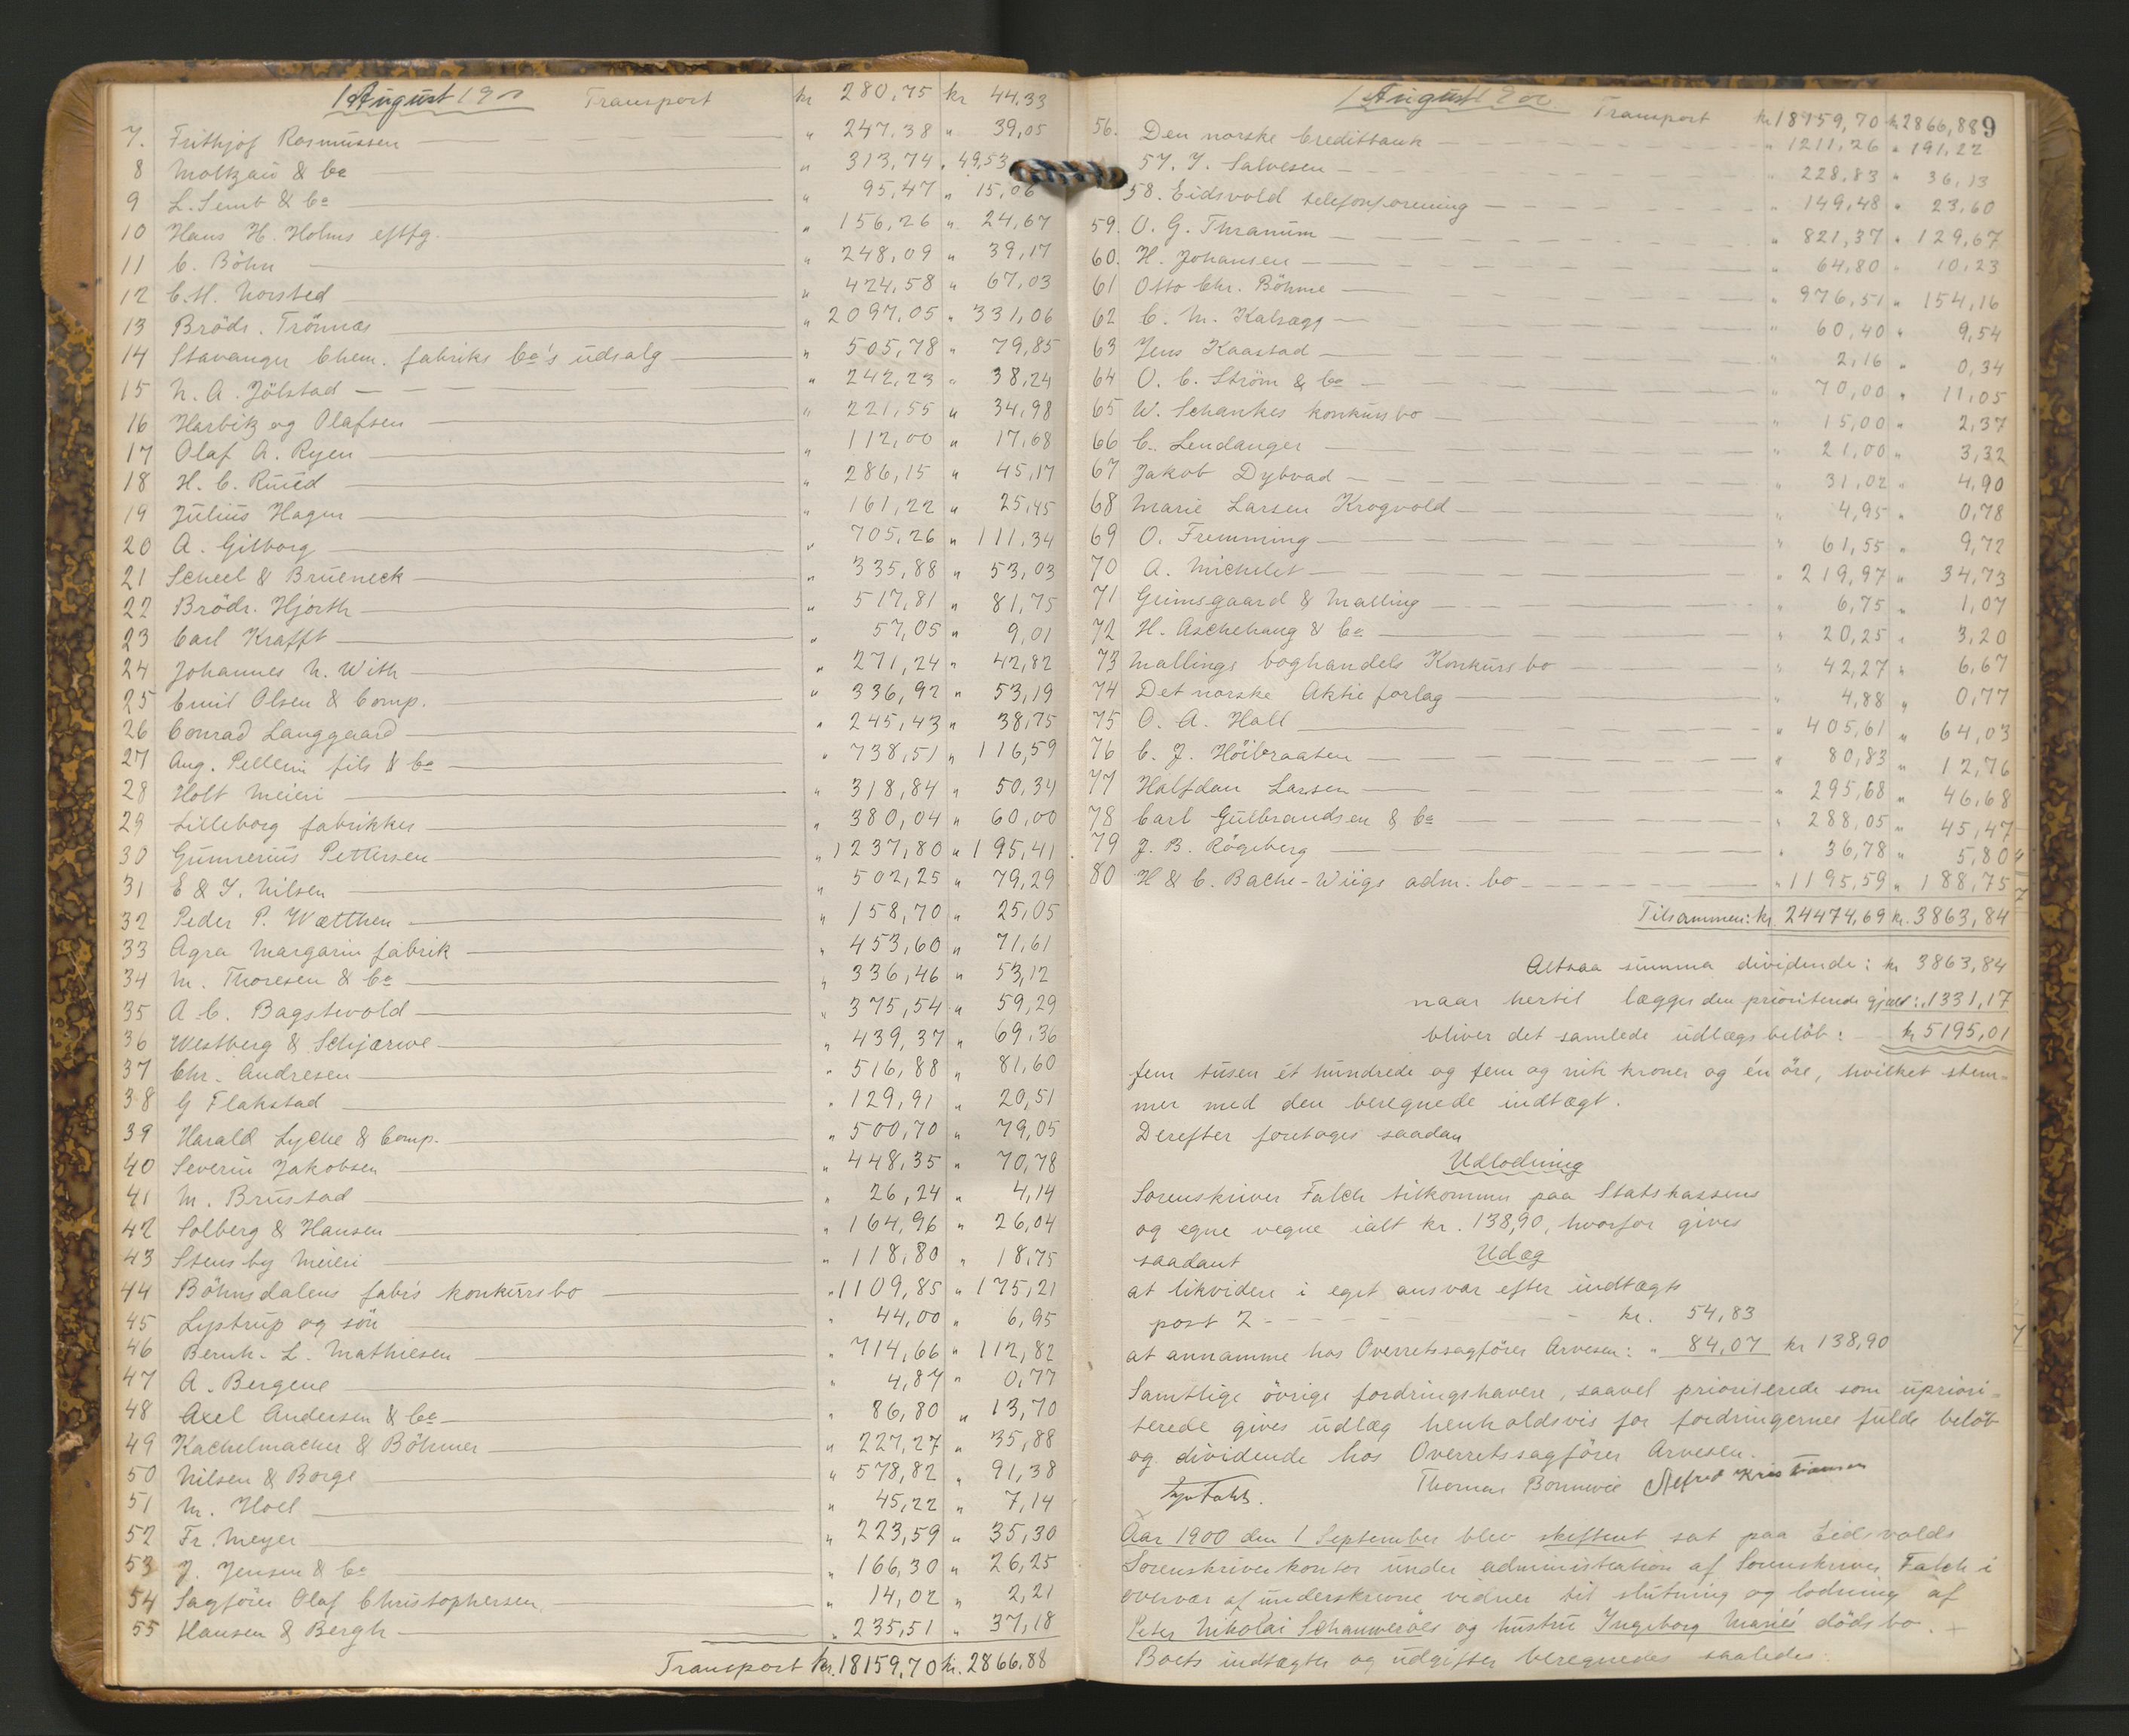 1 August 1900 Transport kr 280,75 kr 44,33
7. Frithjof Rasmussen — " 247,38 " 39,05
8 Moltzau & Co — " 313,74 " 49,53
9 L. Semb & Co — " 95,47 " 15,06
10 Hans H. Holms eftfg. " 156,26 " 24,67
11 C. Böhn — " 248,09 " 39,17
12 C. H. Norsted — " 424,58 " 67,03
13 Brödr. Trönnæs — " 2097,05 " 331,06
14 Stavanger Chem. fabriks Co's udsalg — " 505,78 " 79,85
15 N. A. Jölstad — " 242,23 " 38,24
16 Harbitz og Olafsen — " 221,55 " 34,98
17 Olaf A. Ryen — " 112,00 " 17,68
18 H. C. Ruud — " 286,15 " 45,17
19 Julius Hagen — " 161,22 " 25,45
20 A. Gilborg — " 705,26 " 111,34
21 Scheel & Brueneck — " 335,88 " 53,03
22 Brödr. Hjorth — " 517,81 " 81,75
23 Carl Krafft — " 57,05 " 9,01
24 Johannes N. With — " 271,24 " 42,82
25 Emil Olsen & Comp. " 336,92 " 53,19
26 Conrad Langgaard — " 245,43 " 38,75
27 Aug. Pellerin fils & Co — " 738,51 " 116,59
28 Holt Meieri — " 318,84 " 50,34
29 Lilleborg fabrikker — " 380,04 " 60,00
30 Gunnerius Pettersen — " 1237,80 " 195,41
31 E & T. Nilsen — " 502,25 " 79,29
32 Peder P. Wætthen — " 158,70 " 25,05
33 Agra Margarin fabrik — " 453,60 " 71,61
34 M. Thoresen & Co — " 336,46 " 53,12
35 A C. Bagstevold — " 375,54 " 59,29
36 Westberg & Schjærwe — " 439,37 " 69,36
37 Chr. Andresen — " 516,88 " 81,60
38 G Flakstad — " 129,91 " 20,51
39 Harald Lyche & Comp. " 500,70 " 79,05
40 Severin Jakobsen — " 448,35 " 70,78
41 M. Brustad — " 26,24 " 4,14
42 Solberg & Hansen — " 164,96 " 26,04
43 Stensby Meieri — " 118,80 " 18,75
44 Böhnsdalens fabr's konkursbo — " 1109,85 " 175,21
45 Lystrup og sön — " 44,00 " 6,95
46 Bernh. L. Mathiesen — " 714,66 " 112,82
47 A. Bergene — " 4,87 " 0,77
48 Axel Andersen & Co — " 86,80 " 13,70
49 Kachelmacher & Böhmer — " 227,27 " 35,88
50 Nilsen & Borge — " 578,82 " 91,38
51 M. Holl — " 45,22 " 7,14
52 Fr. Meyer — " 223,59 " 35,30
53 J. Jensen & Co — " 166,30 " 26,25
54 Sagförer Olaf Christophersen — " 14,02 " 2,21
55 Hansen & Bergh — " 235,51 " 37,18
Transport kr. 18159,70 kr. 2866,88
1 August 1900. Transport kr 18159,70 kr. 2866,88 9
56. Den norske Creditbank — " 1211,26 " 191,22
57. T. Salvesen — " 228,83 " 36,13
58. Eidsvold telefonforening — " 149,48 " 23,60
59. O. G. Thranum — " 821,37 " 129,67
60. H. Johansen — " 64,80 " 10,23
61 Otto Chr. Böhme — " 976,51 " 154,16
62 C. M. Kalsægg — " 60,40 " 9,54
63 Jens Kaastad — " 2,16 " 0,34
64 O. C. Ström & Co — " 70,00 " 11,05
65 W. Schankes konkursbo — " 15,00 " 2,37
66 C. Lendanger — " 21,00 " 3,32
67 Jakob Dybvad — " 31,02 " 4,90
68 Marie Larsen Krogvold — " 4,95 " 0,78
69 O. Fremming — " 61,55 " 9,72
70 A. Michelet — " 219,97 " 34,73
71 Grimsgaard & Malling — " 6,75 " 1,07
72 H. Aschehaug & Co — " 20,25 " 3,20
73 Mallings boghandels Konkursbo — " 42,27 " 6,67
74 Det norske Aktieforlag — " 4,88 " 0,77
75 O. A. Hall — " 405,61 " 64,03
76 C. J. Höibraaten — " 80,83 " 12,76
77 Halfdan Larsen — " 295,68 " 46,68
78 Carl Gulbrandsen & Co — " 288,05 " 45,47
79 J. B. Rögeberg — " 36,78 " 5,80
80 H & C. Bache-Wiigs adm. bo — " 1195,59 " 188,75
Tilsammen: kr 24474,69 kr. 3863,84
Altsaa summa dividende: kr 3863,84
naar hertil lægges den prioriterede gjæld: " 1331,17
bliver det samlede udlægsbelöb: kr 5195,01
fem tusen ét hundrede og fem og niti kroner og én öre, hvilket stem-
mer med den beregnede indtægt.
Derefter foretoges saadan
Udlodning
Sorenskriver Falch tilkommer paa Statskassens
og egne vegne ialt kr. 138,90, hvorfor gives
saadant Udlæg
at likvidere i eget ansvar efter indtægts
post 2 - - - kr. 54,83
at annamme hos Overretssagförer Arvesen: " 84,07 kr 138,90
Samtlige övrige fordringshavere, saavel prioriterede som upriori-
terede gives udlæg henholdsvis for fordringernes fulde belöb
og dividende hos Overretssagförer Arvesen.
Thomas Bonnevie Alfred Kristiansen
Aar 1900 den 1 September blev skifteret sat paa Eidsvolds
Sorenskriverkontor under administration af Sorenskriver Falch i
overvær af underskrevne vidner til slutning og lodning af
Peter Nikolai Schanweröes og hustru Ingeborg Maries dödsbo. +
Boets indtægter og udgifter beregnedes saaledes: